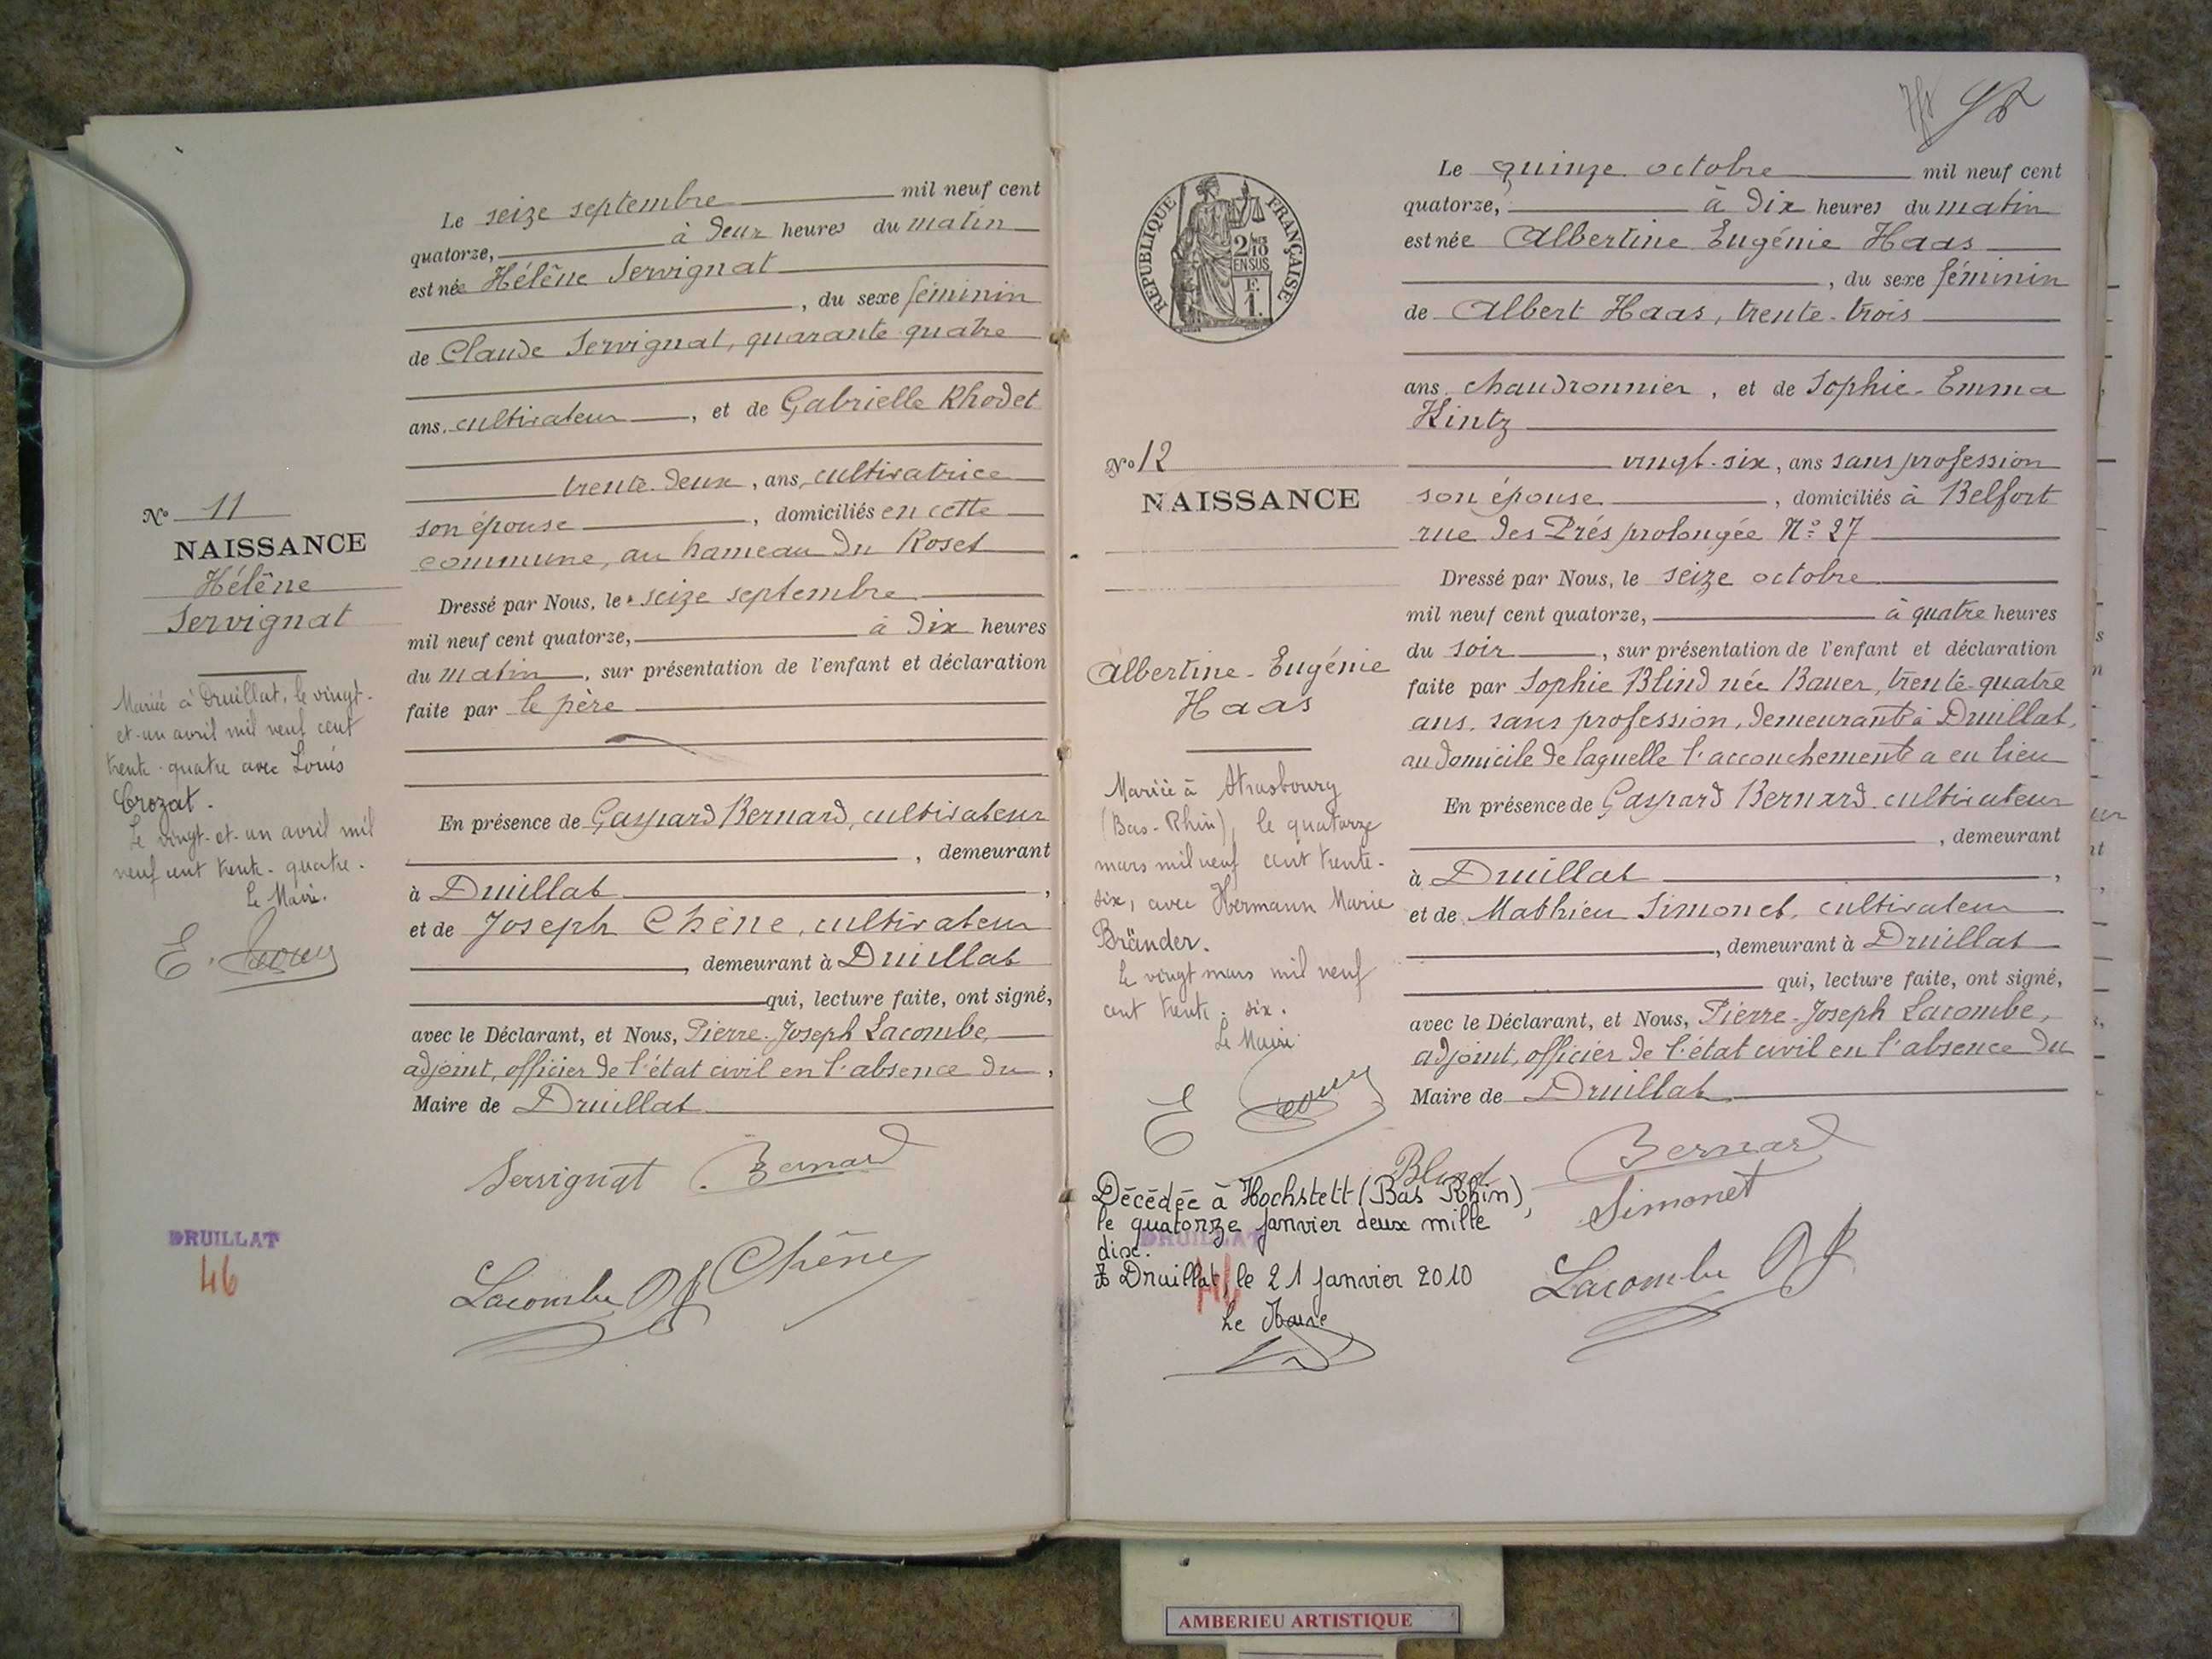 Le seize septembre mil neuf cent
quatorze, à deux heures du matin
est née Hélène Servignat
, du sexe féminin
de Claude Servignat, quarante quatre
ans, cultivateur, et de Gabrielle Rhodet
trente-deux, ans, cultivatrice
son épouse, domiciliés en cette
commune, au hameau du Roset
Dressé par Nous, le seize septembre
mil neuf cent quatorze, à dix heures
du matin, sur présentation de l'enfant et déclaration
faite par le père
En présence de Gaspard Bernard, cultivateur
, demeurant
à Druillat,
et de Joseph Chêne, cultivateur
, demeurant à Druillat
qui, lecture faite, ont signé,
avec le Déclarant, et Nous, Pierre-Joseph Lacombe,
adjoint, officier de l'état civil en l'absence du,
Maire de Druillat
Servignat Bernard
Lacombe Chêne
No 11
NAISSANCE
Hélène
Servignat
Mariée à Druillat, le vingt-
et-un avril mil neuf cent
trente-quatre avec Louis
Crozat.
Le vingt-et-un avril mil
neuf cent trente-quatre.
Le Maire.
E.
DRUILLAT
46
RÉPUBLIQUE FRANÇAISE
2/10
EN SUS
F.
1.
No 12
NAISSANCE
Albertine-Eugénie
Haas
Mariée à Strasbourg
(Bas-Rhin), le quatorze
mars mil neuf cent trente-
six, avec Hermann Marie
Bränder.
Le vingt mars mil neuf
cent trente-six.
Le Maire
E
Décédée à Hochstett (Bas Rhin),
le quatorze janvier deux mille
dix.
à Druillat, le 21 janvier 2010
Le Maire
DRUILLAT
46
Le quinze octobre mil neuf cent
quatorze, à dix heures du matin
est née Albertine Eugénie Haas
, du sexe féminin
de Albert Haas, trente-trois
ans, chaudronnier, et de Sophie-Emma
Hintz
vingt-six, ans sans profession
son épouse, domiciliés à Belfort
rue des Prés prolongée No 27
Dressé par Nous, le seize octobre
mil neuf cent quatorze, à quatre heures
du soir, sur présentation de l'enfant et déclaration
faite par Sophie Blind née Bauer, trente-quatre
ans, sans profession, demeurant à Druillat,
au domicile de laquelle l'accouchement a eu lieu
En présence de Gaspard Bernard cultivateur
, demeurant
à Druillat,
et de Mathieu Simonet, cultivateur
, demeurant à Druillat
qui, lecture faite, ont signé,
avec le Déclarant, et Nous, Pierre-Joseph Lacombe,
adjoint, officier de l'état civil en l'absence du
Maire de Druillat
Blind Bernard
Simonet
Lacombe
AMBERIEU ARTISTIQUE